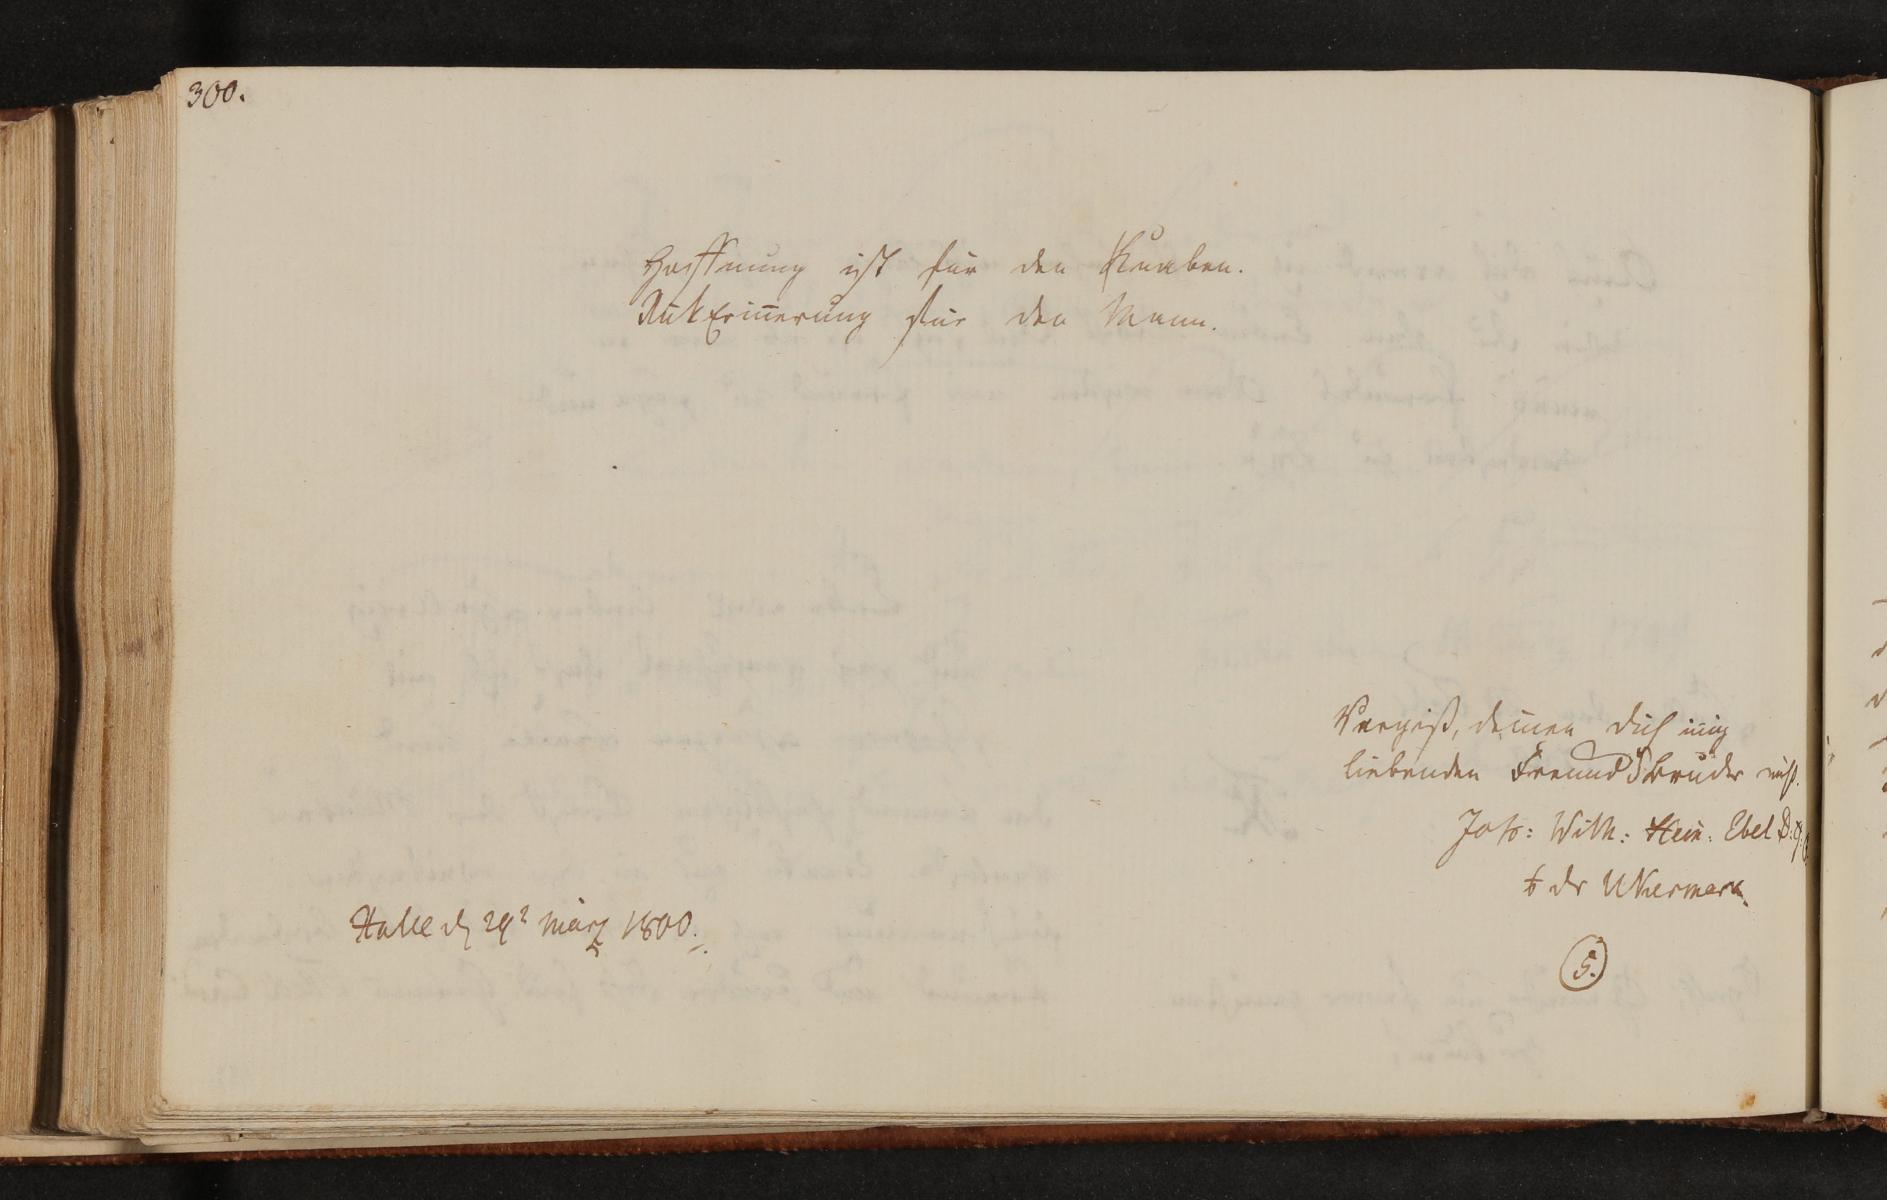 300.
Hoffnung ist für den Knaben.
RükErinnerung für den Mann.
Vergiß, deinen Dich inig
liebenden Freund & Bruder nicht.
Joh: Wilh: Hein: Ebel
d: Ukermark.
Halle d 29 März 1800.
5.